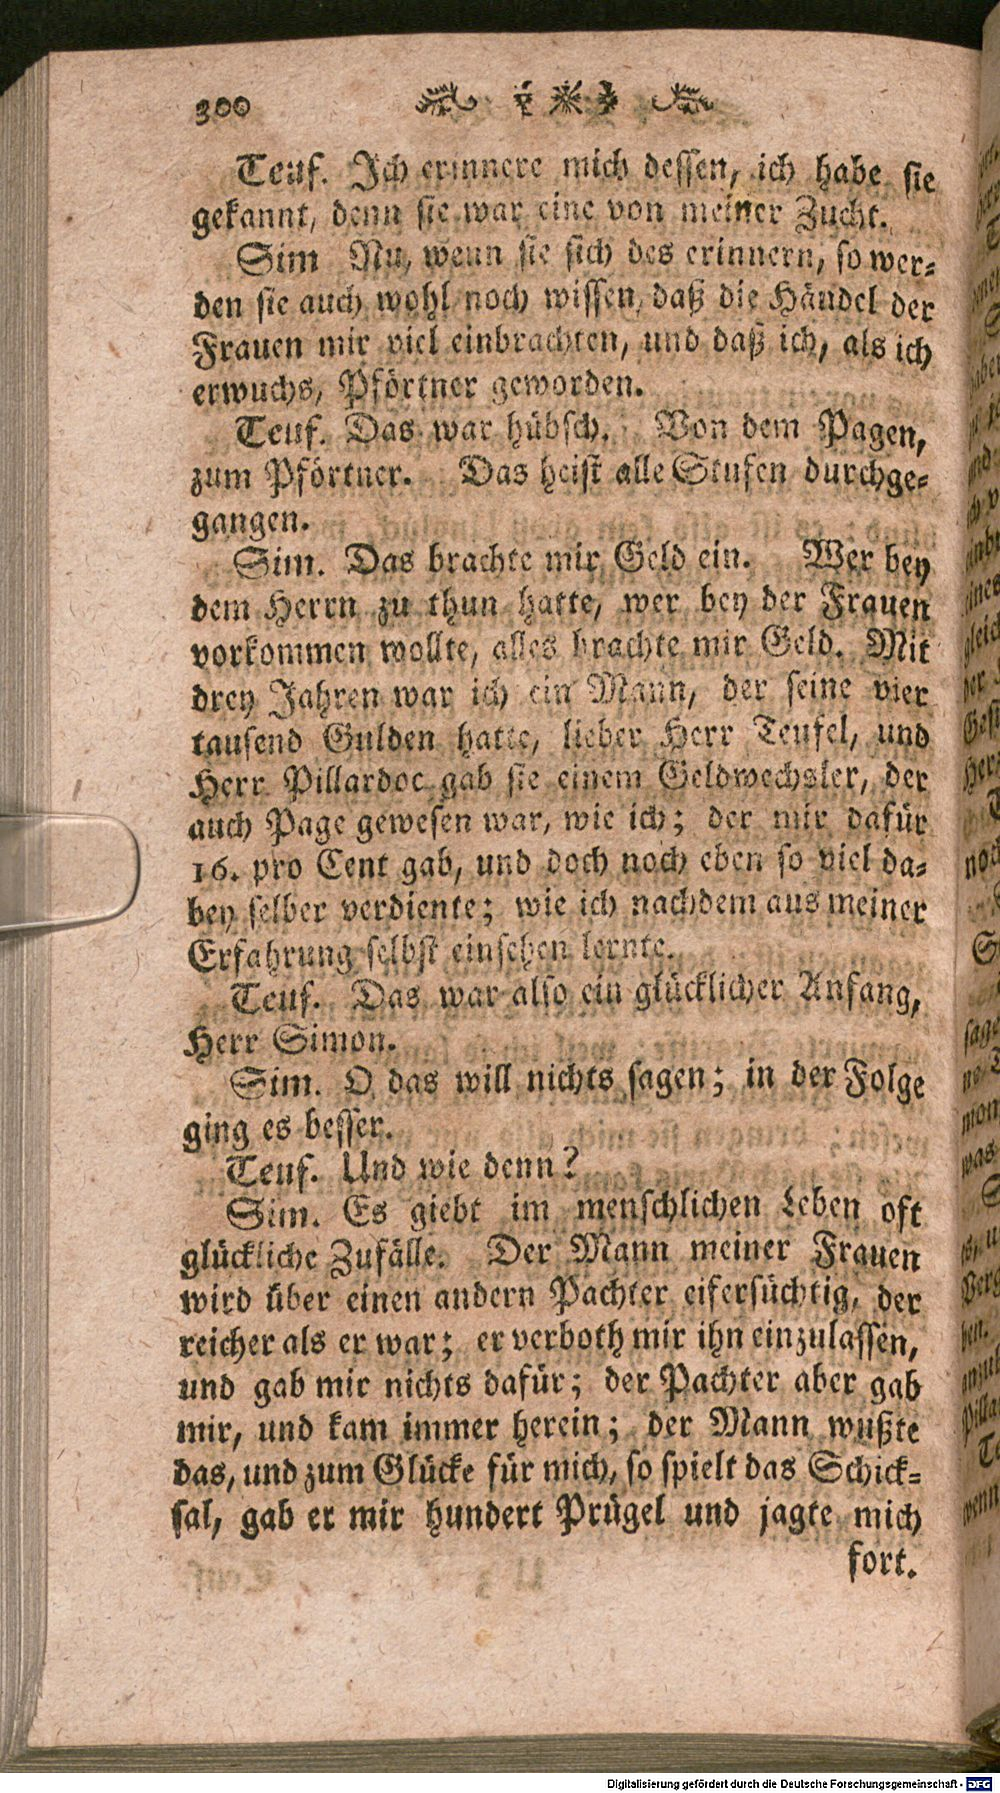 300
Teuf. Ich erinnere mich dessen, ich habe sie
gekannt, denn sie war eine von meiner Zucht.
Sim Nu, wenn sie sich des erinnern, so wer-
den sie auch wohl noch wissen, daß die Händel der
Frauen mir viel einbrachten, und daß ich, als ich
erwuchs, Pförtner geworden.
Teuf. Das war hübsch. Von dem Pagen,
zum Pförtner. Das heist alle Stufen durchge-
gangen.
Sim. Das brachte mir Geld ein. Wer bey
dem Herrn zu thun hatte, wer bey der Frauen
vorkommen wollte, alles brachte mir Geld. Mit
drey Jahren war ich ein Mann, der seine vier
tausend Gulden hatte, lieber Herr Teufel, und
Herr Pillardoc gab sie einem Geldwechsler, der
auch Page gewesen war, wie ich; der mir dafür
16. pro Cent gab, und doch noch eben so viel da-
bey selber verdiente; wie ich nachdem aus meiner
Erfahrung selbst einsehen lernte.
Teuf. Das war also ein glücklicher Anfang,
Herr Simon.
Sim. O das will nichts sagen; in der Folge
ging es besser.
Teuf. Und wie denn?
Sim. Es giebt im menschlichen Leben oft
glückliche Zufälle. Der Mann meiner Frauen
wird über einen andern Pachter eifersüchtig, der
reicher als er war; er verboth mir ihn einzulassen,
und gab mir nichts dafür; der Pachter aber gab
mir, und kam immer herein; der Mann wußte
das, und zum Glücke für mich, so spielt das Schick-
sal, gab er mir hundert Prügel und jagte mich
fort.
Digitalisierung gefördert durch die Deutsche Forschungsgemeinschaft - DFG